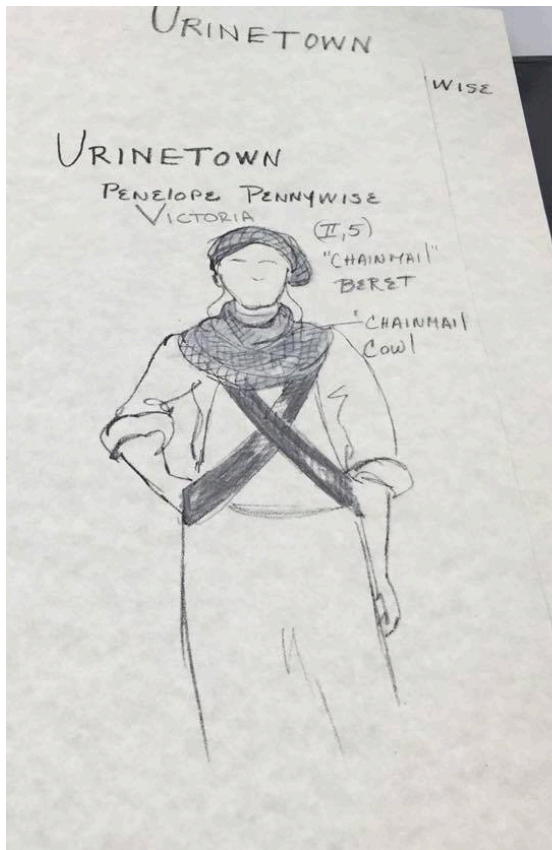 URINETOWN
WISE
URINETOWN
PENELOPE PENNYWISE
VICTORIA
(II,5)
"CHAINMAIL"
BERET
"CHAINMAIL
COWL